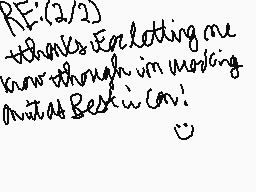 RE:(2/2)
thanks For letting me
know though im working
on it as Best i can!